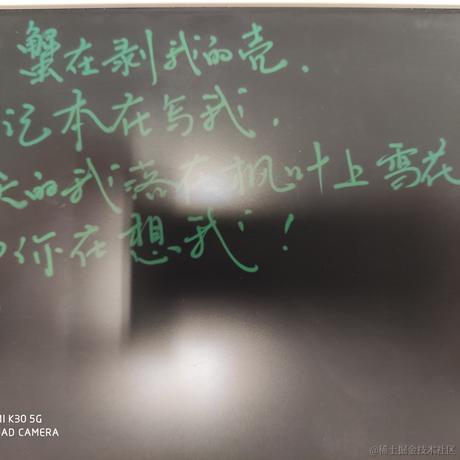 蟹在剥我的壳.
记本在写我.
天的我落在枫叶上雪花
你在想我!
MI K30 5G
AD CAMERA
@稀土掘金技术社区